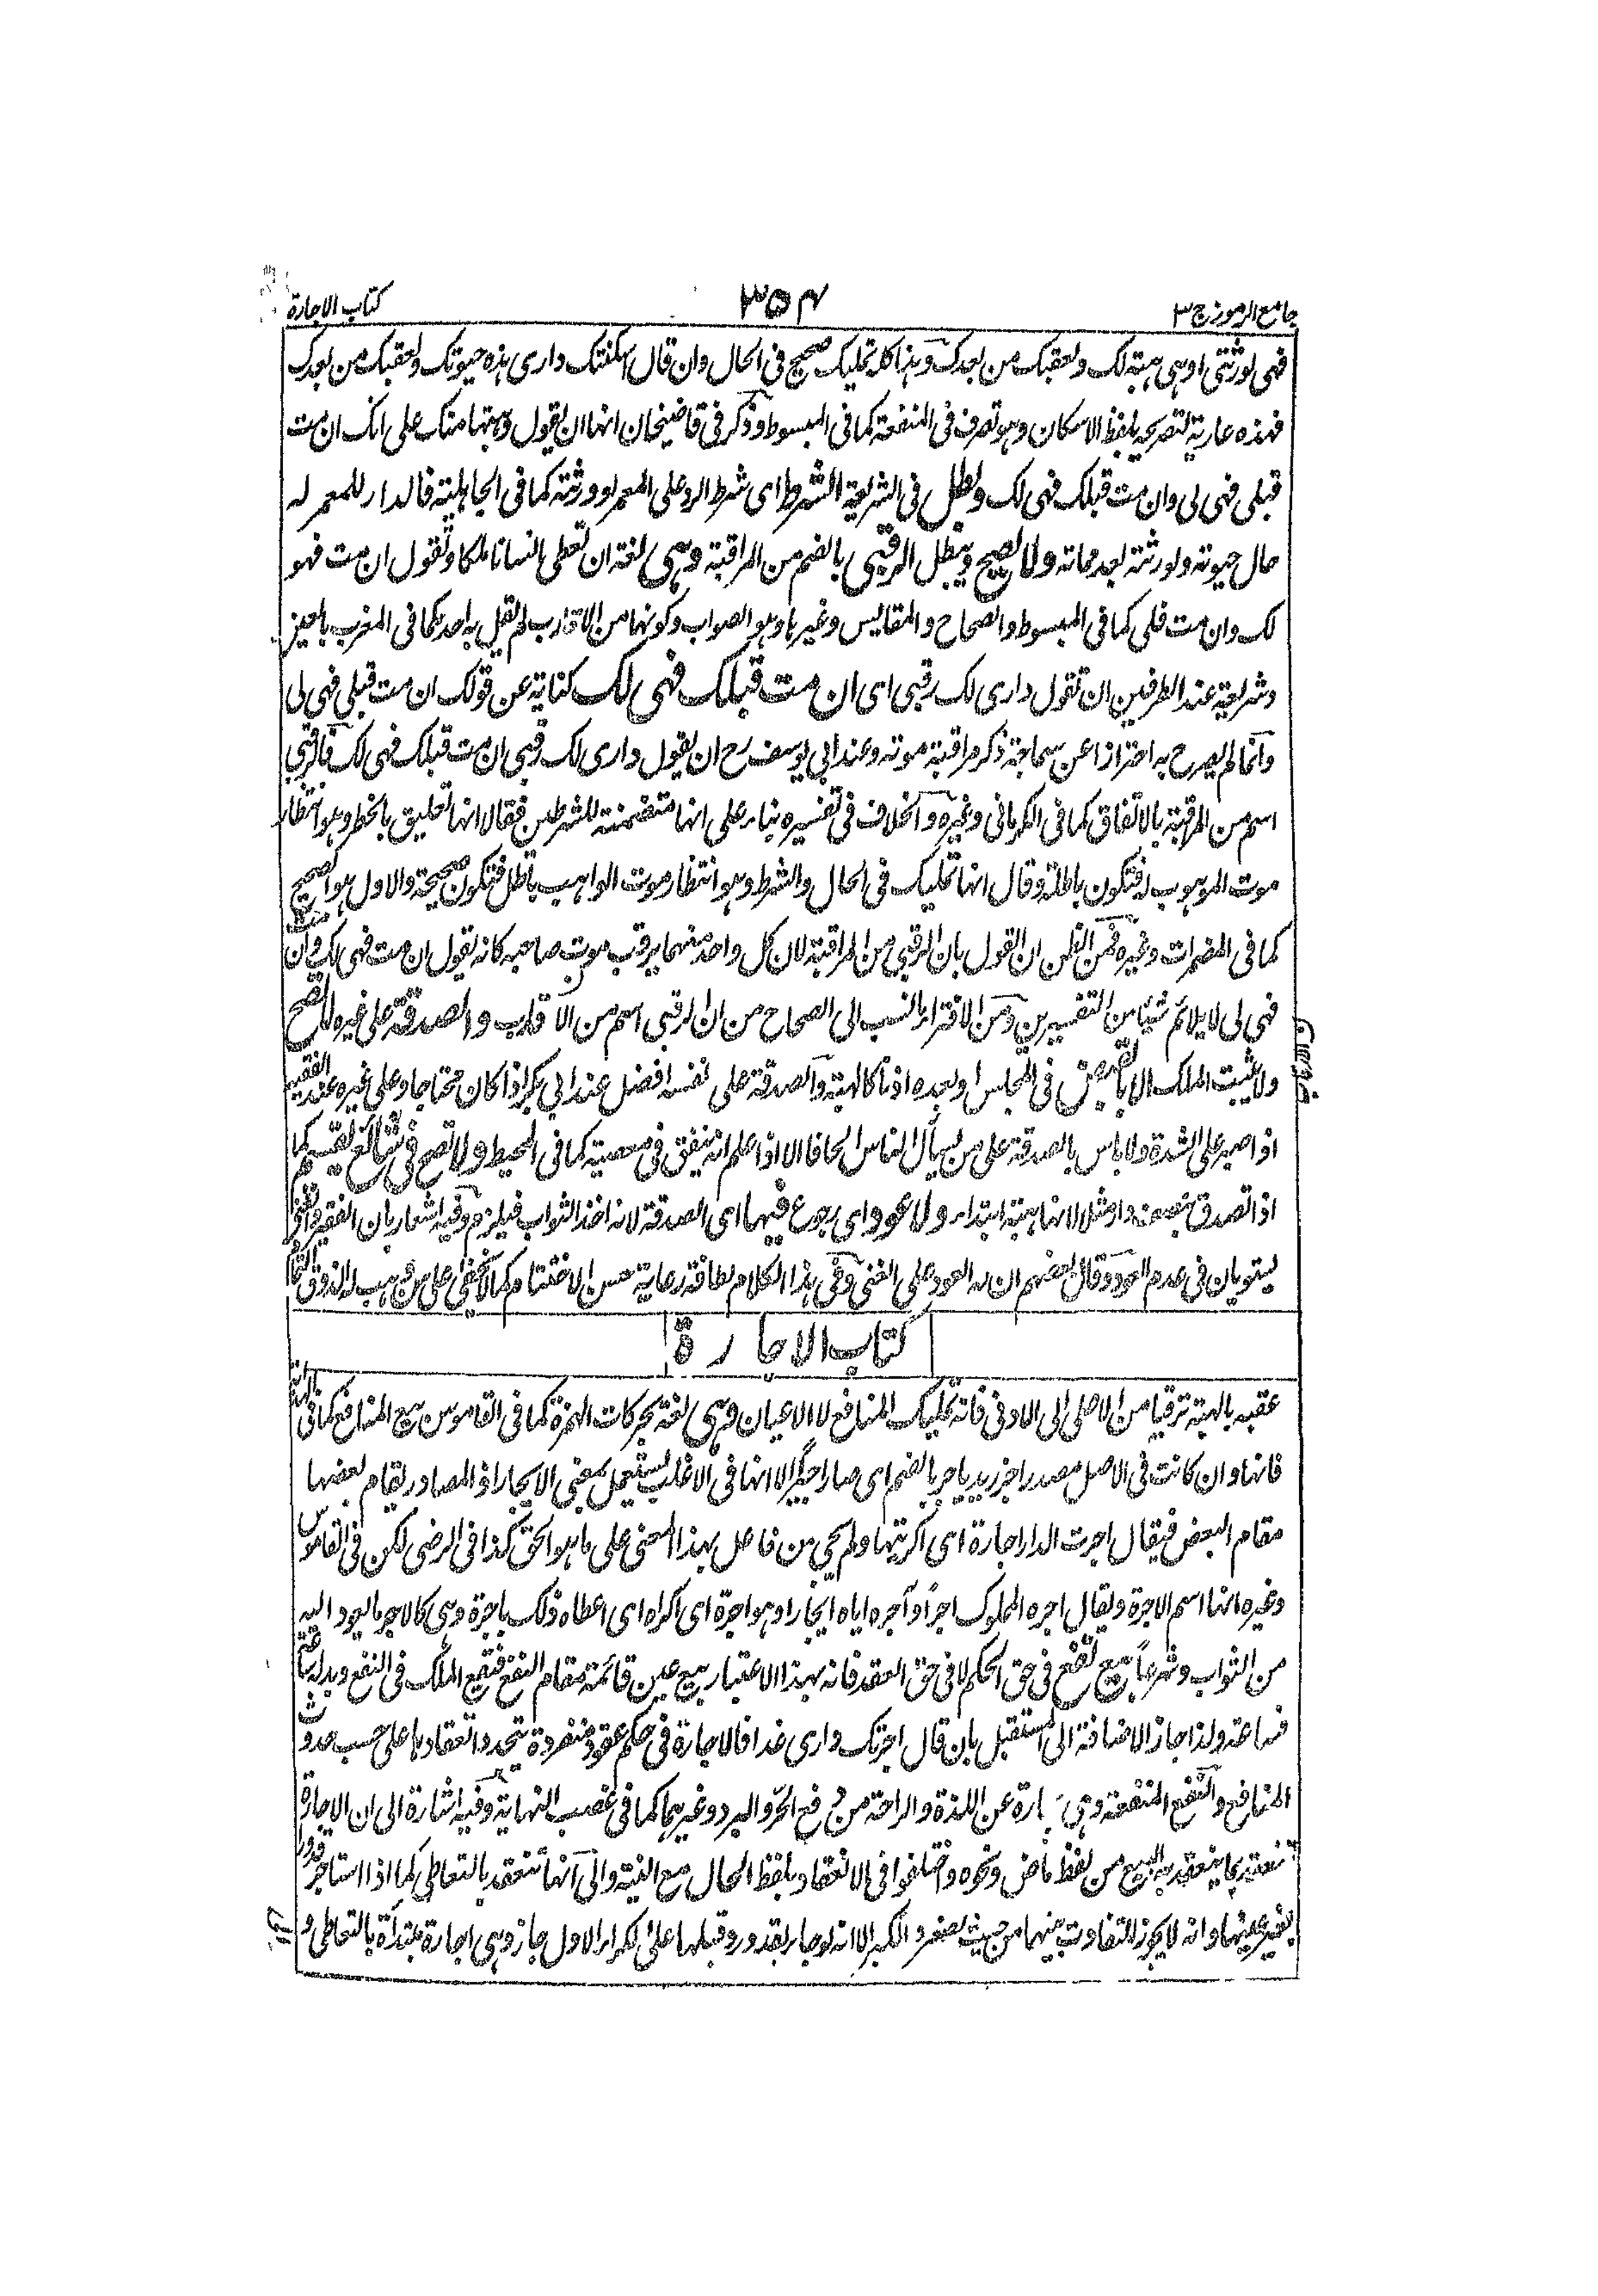 جامع الرموز ج ٣
٣٥٤
كتاب الاجارة
فهي لورثتي او هي هبة لك ولعقبك من بعدك وهذا كله تمليك صحيح في الحال وان قال اسكنتك داري هذه حيوتك ولعقبك من بعدك
فهذه عارية لتصريحه بلفظ الاسكان وهو تصرف في المنفعة كما في المبسوط وذكر في قاضيخان انها ان يقول وهبتها منك على انك ان مت
قبلي فهي لي وان مت قبلك فهي لك وبطل في الشريعة الشرط اي شرط الرد على المعمر او ورثته كما في الجاهلية فالدار للمعمر له
حال حيوته ولورثته بعد مماته ولا يصح ويبطل الرقبى بالضم من المراقبة وهي لغة ان تعطي انسانا ملكا وتقول ان مت فهو
لك وان مت فلي كما في المبسوط والصحاح والمقاليس وغيرها وهو الصواب وكونها من الاقارب لم يقل به احد كما في المغرب
وشريعة عند الطرفين ان تقول داري لك رقبى اي ان مت قبلك فهي لك كناية عن قولك ان مت قبلي فهي لي
وانما لم يصرح به احترازا عن سماجة ذكر مراقبة موته وعند ابي يوسف رح ان يقول داري لك رقبى ان مت قبلك فهي لك فالرقبى
اسم من المراقبة بالاتفاق كما في الكرماني وغيره والخلاف في تفسيره بناء على انها متضمنة للشرطين فقالا انها تعليق بالخطر وهو انتظار
موت الموهوب له فتكون باطلة وقال انها تمليك في الحال والشرط وهو انتظار موت الواهب باطل فتكون صحيحة والاول هو الصحيح
كما في المضمرات وغيره فمن الظن ان القول بان الرقبى من المراقبة لان كل واحد منهما يرقب موت صاحبه كانه يقول ان مت فهي لك وان مت
فهي لي لا يلائم شيئا من التفسيرين ومن الافتراء بالنسب الى الصحاح من ان الرقبى اسم من الاقارب والصدقة على غيره لا تصح
ولا يثبت الملك الا بالقبض في المجلس او بعده اذنا كالهبة والصدقة على نفسه افضل عند ابي بكر اذا كان محتاجا وعلى غيره عند الفقيه
اذا صبر على الشدة ولا باس بالصدقة على من يسأل الناس الحافا الا اذا علم انه ينفق في معصية كما في المحيط ولا تصح في شائع يقسم كما
اذا تصدق بنصف دار مثلا لانها هبة ابتداء ولا عود اي رجوع فيها اي الصدقة لانه اخذ الثواب فيلزم وفيه اشعار بان الفقير والغني
يستويان في عدم العود وقال بعضهم ان له العود على الغني وفي هذا الكلام لطافة رعاية حسن الاختتام كما لا يخفى على من وهب له الذوق التام
كتاب الاجارة
عقبه بالهبة ترقيا من الاعلى الى الادنى فانه تمليك المنافع لا الاعيان وهي لغة بحركات الهمزة كما في القاموس بيع المنافع كما في الهداية
فانها وان كانت في الاصل مصدر اجر زيد ياجر بالضم اي صار اجيرا الا انها في الاغلب يستعمل بمعنى الايجار اذ المصادر يقام بعضها
مقام البعض فيقال اجرت الدار اجارة اي اكريتها ولم يجئ من فاعل بهذا المعنى على ما هو الحق كذا في الرضى لكن في القاموس
وغيره انها اسم الاجرة ويقال اجره المملوك اجرا وآجره اياه ايجارا وهو اجرة اي اكراه اي اعطاه ذلك باجرة وهي كالاجر ما يعود اليه
من الثواب وشرعا بيع نفع في حق الحكم لا في حق العقد فانه بهذا الاعتبار بيع عين قائمة مقام النفع فتقع الملك في النفع وبدله ساعة
فساعة ولذا جاز الاضافة الى المستقبل بان قال اجرتك داري غدا فالاجارة في حكم عقود منفردة يتجدد انعقادها على حسب حدوث
المنافع والنفع المنفعة وهي بارة عن اللذة والراحة من دفع الحر والبرد وغيرهما كما في غصب النهاية وفيه اشارة الى ان الاجارة
تنعقد بما ينعقد به البيع من لفظ ماض ونحوه واختلفوا في الانعقاد بلفظ الحال مع النية والى انها تنعقد بالتعاطي كما اذا استاجر قدورا
بغير عينها وانه لا يجوز للتفاوت بينهما من حيث الصغر والكبر الا انه لو جاء بقدور وقبلها على الكراء الاول جاز وهي اجارة مبتدأة بالتعاطي و